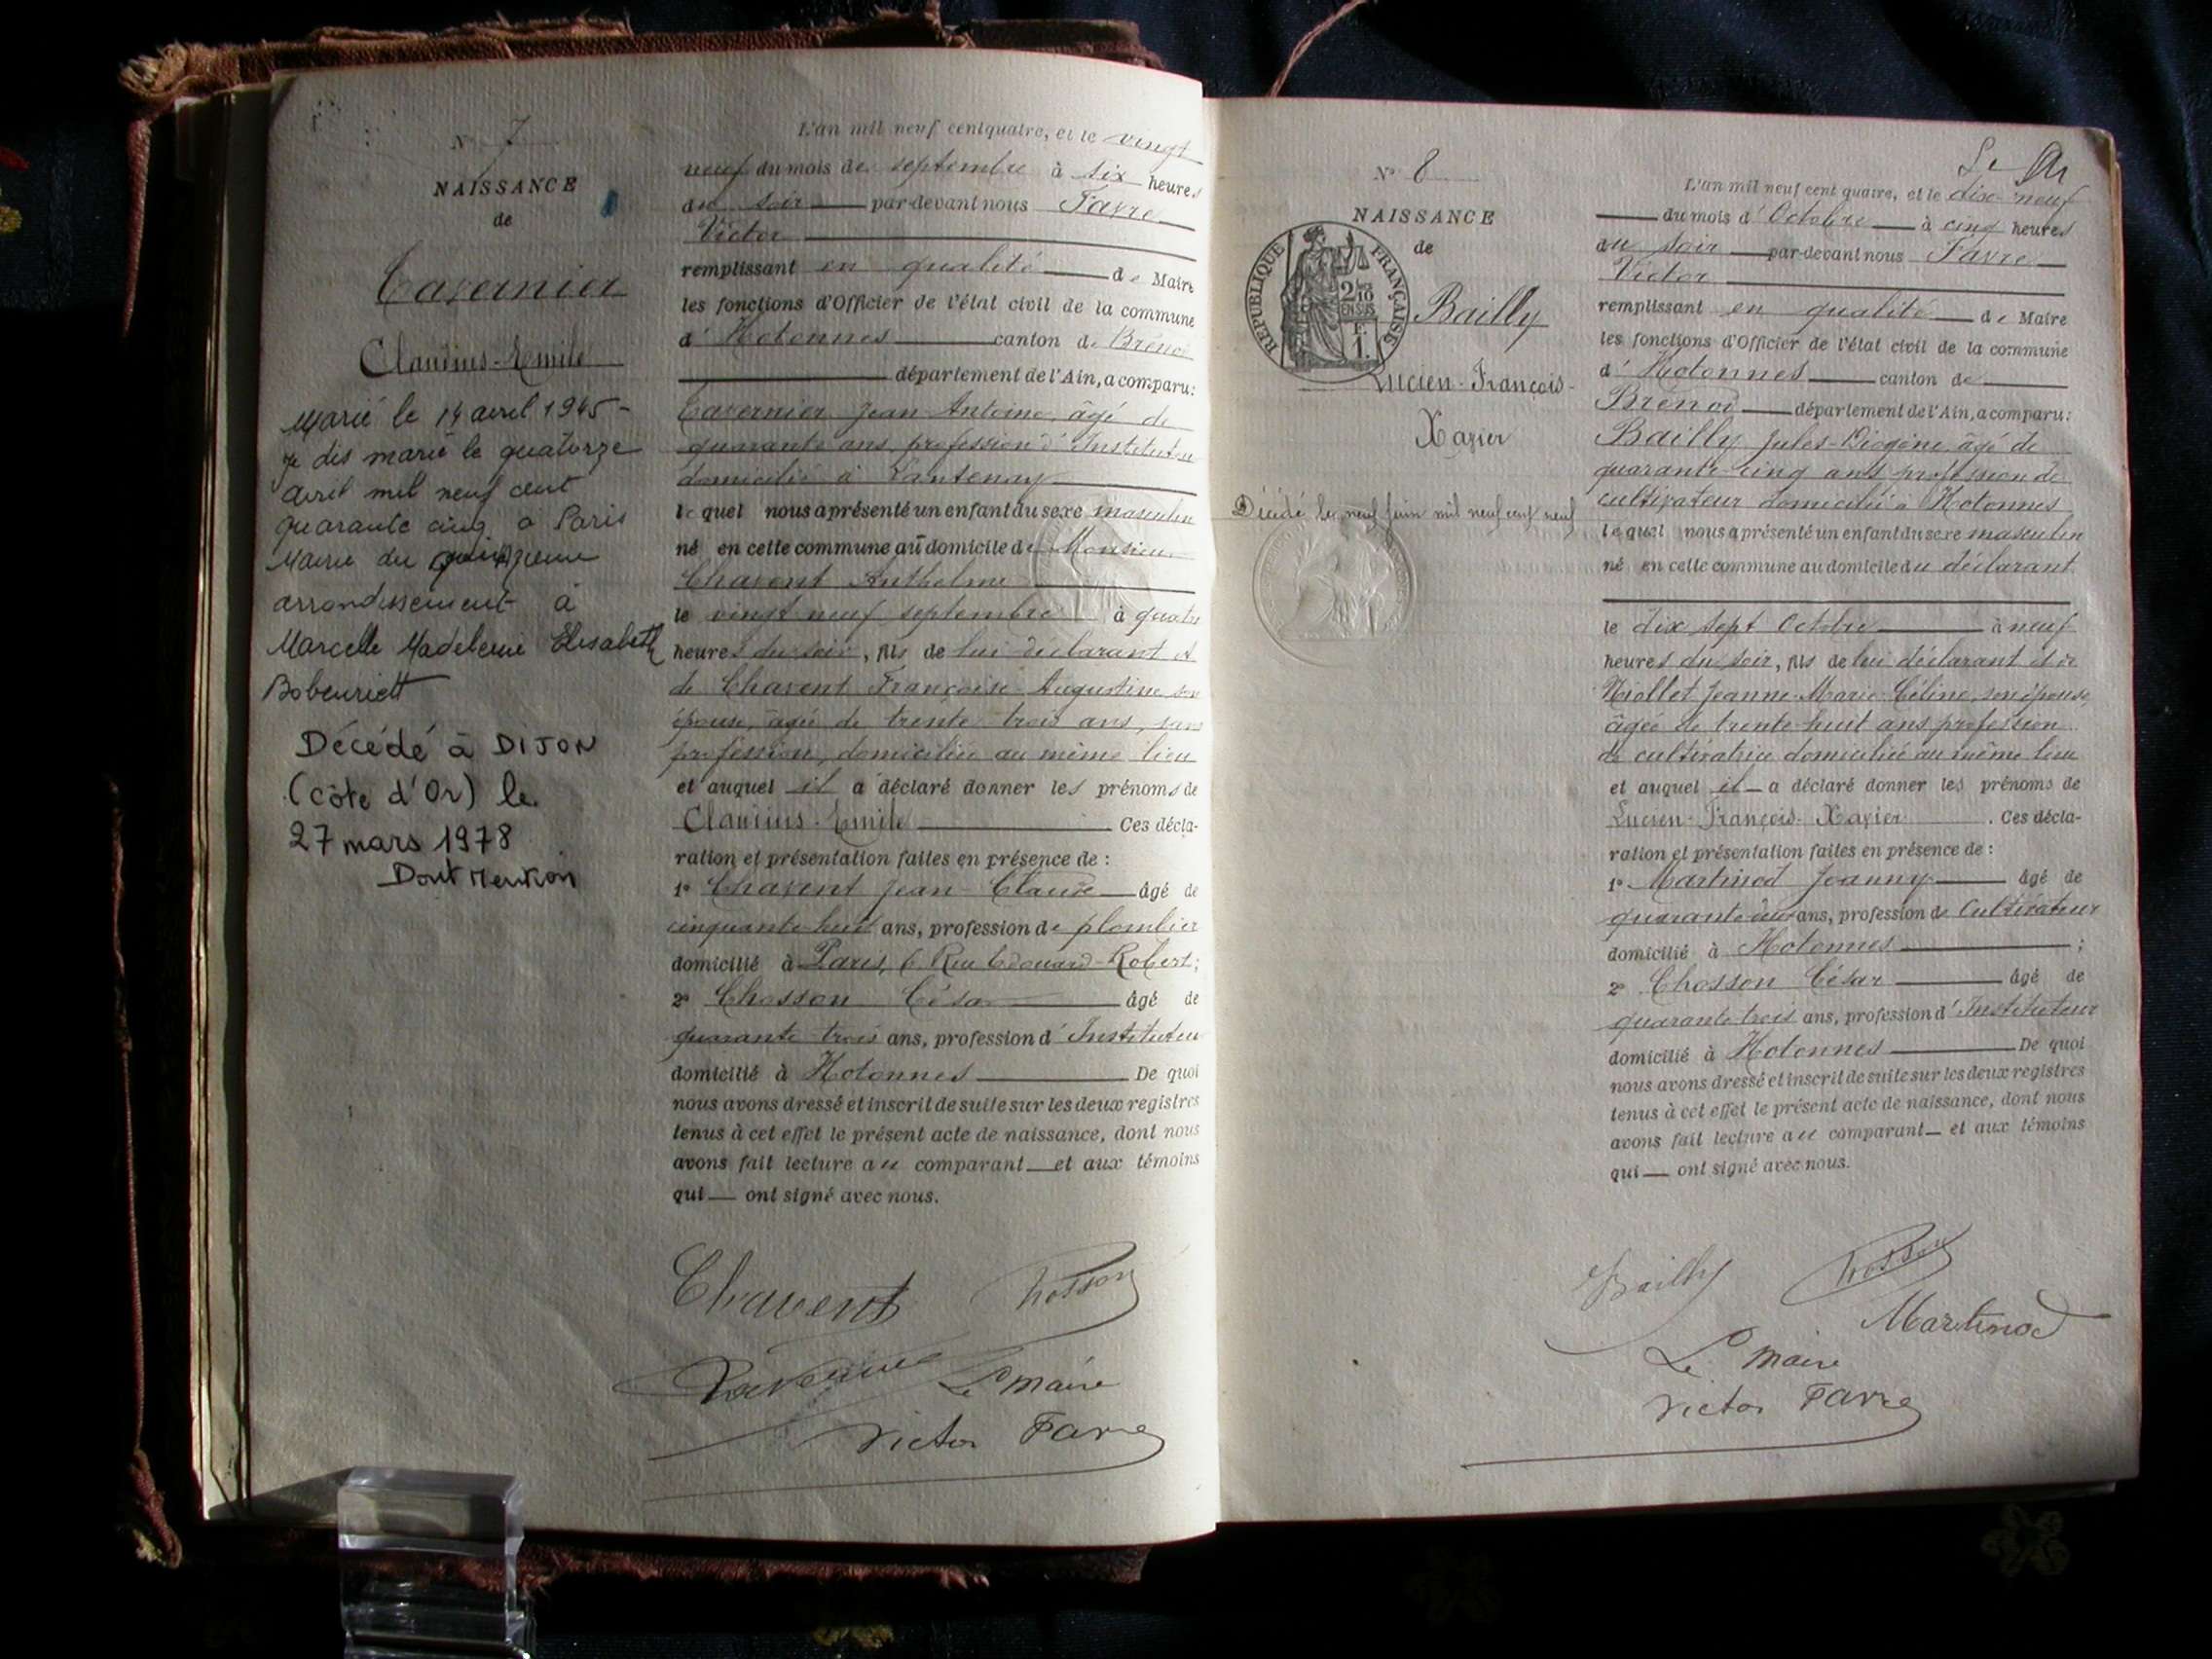 N° 7
NAISSANCE
de
Tavernier
Claudius-Emile
Marié le 14 avril 1945 -
Je dis marié le quatorze
avril mil neuf cent
quarante cinq à Paris
Mairie du quinzième
arrondissement à
Marcelle Madeleine Elisabeth
Bobenriett
Décédé à DIJON
(côte d'Or) le
27 mars 1978
Dont Mention
L'an mil neuf cent quatre, et le vingt
neuf du mois de septembre à six heures
du soir par-devant nous Favre
Victor
remplissant en qualité de Maire
les fonctions d'Officier de l'état civil de la commune
d' Hotonnes canton de Brénod
département de l'Ain, a comparu:
Tavernier Jean Antoine, âgé de
quarante ans, profession d'Instituteur
domicilié à Lantenay
lequel nous a présenté un enfant du sexe masculin
né en cette commune au domicile de Monsieur
Chavent Anthelme
le vingt neuf septembre à quatre
heures du soir, fils de lui déclarant et
de Chavent Françoise-Augustine son
épouse, âgée de trente trois ans, sans
profession, domiciliée au même lieu
et auquel il a déclaré donner les prénoms de
Claudius-Emile Ces décla-
ration et présentation faites en présence de :
1° Chavent Jean-Claude âgé de
cinquante-huit ans, profession de plombier
domicilié à Paris, 6 Rue Edouard-Robert;
2° Chosson César âgé de
quarante trois ans, profession d'Instituteur
domicilié à Hotonnes De quoi
nous avons dressé et inscrit de suite sur les deux registres
tenus à cet effet le présent acte de naissance, dont nous
avons fait lecture au comparant et aux témoins
qui ont signé avec nous.
Chavent Chosson
Tavernier Le Maire
Victor Favre
N° 8
NAISSANCE
de
RÉPUBLIQUE FRANÇAISE
2/10 EN SUS
1 F.
Bailly
Lucien-François-
Xavier
Décédé le neuf juin mil neuf cent neuf
L'an mil neuf cent quatre, et le dix-neuf
du mois d'Octobre à cinq heures
du soir par-devant nous Favre
Victor
remplissant en qualité de Maire
les fonctions d'Officier de l'état civil de la commune
d' Hotonnes canton de
Brénod département de l'Ain, a comparu:
Bailly Jules-Diogène âgé de
quarante-cinq ans profession de
cultivateur domicilié à Hotonnes
lequel nous a présenté un enfant du sexe masculin
né en cette commune au domicile du déclarant
le dix sept Octobre à neuf
heures du soir, fils de lui déclarant et de
Niollet Jeanne-Marie-Céline, son épouse,
âgée de trente huit ans profession
de cultivatrice domiciliée au même lieu
et auquel il a déclaré donner les prénoms de
Lucien-François-Xavier. Ces décla-
ration et présentation faites en présence de :
1° Martinod Joanny âgé de
quarante-deux ans, profession de Cultivateur
domicilié à Hotonnes ;
2° Chosson César âgé de
quarante trois ans, profession d'Instituteur
domicilié à Hotonnes De quoi
nous avons dressé et inscrit de suite sur les deux registres
tenus à cet effet le présent acte de naissance, dont nous
avons fait lecture au comparant et aux témoins
qui ont signé avec nous.
Bailly Chosson
Martinod
Le Maire
Victor Favre